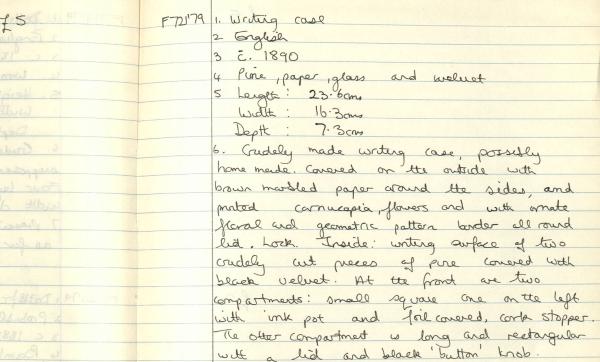 £5
F72'79 1. Writing case
2 English
3 c. 1890
4 Pine, paper, glass and velvet
5 Length: 23.6cms
Width: 16.3cms
Depth: 7.3cms
6. Crudely made writing case, possibly
home made. Covered on the outside with
brown marbled paper around the sides, and
printed carnucopia, flowers and with ornate
floral and geometric pattern border all round
lid. Lock. Inside: writing surface of two
crudely cut pieces of pine covered with
black velvet. At the front are two
compartments: small square one on the left
with ink pot and foil covered, cork stopper.
The other compartment is long and rectangular
with a lid and black 'button' knob.